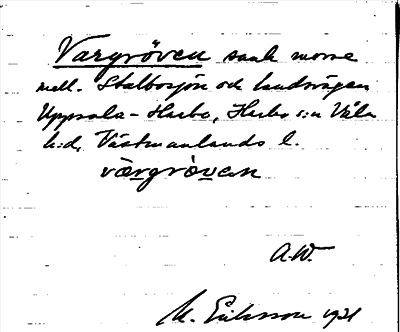 Vargröven sank mosse
mell. Stalbosjön och landsvägen
Uppsala – Harbo, Harbo s:n Våla
h:d, Västmanlands l.
värgròven
A.W.
M. Eriksson 1921